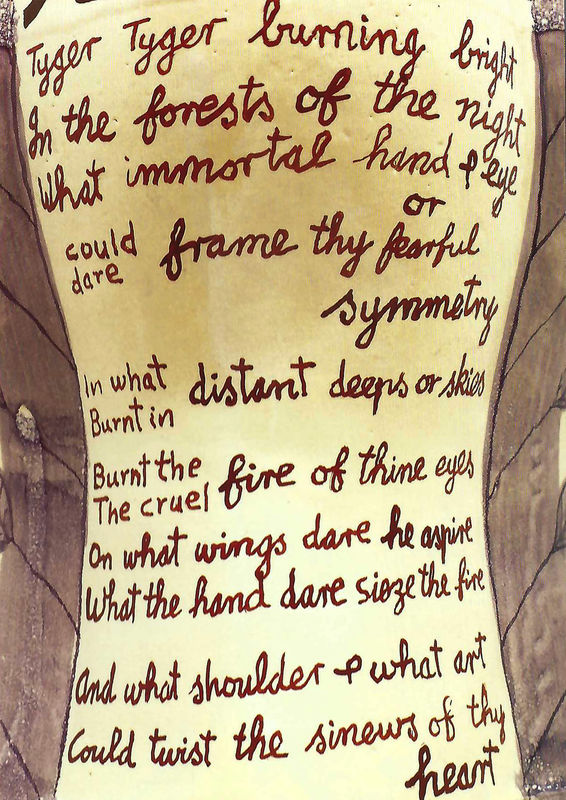 Tyger Tyger burning bright
In the forests of the night
What immortal hand & eye
or
could frame thy fearful
dare
symmetry
In what distant deeps or skies
Burnt in
Burnt the fire of thine eyes
The cruel
On what wings dare he aspire
What the hand dare sieze the fire
And what shoulder & what art
Could twist the sinews of thy
heart